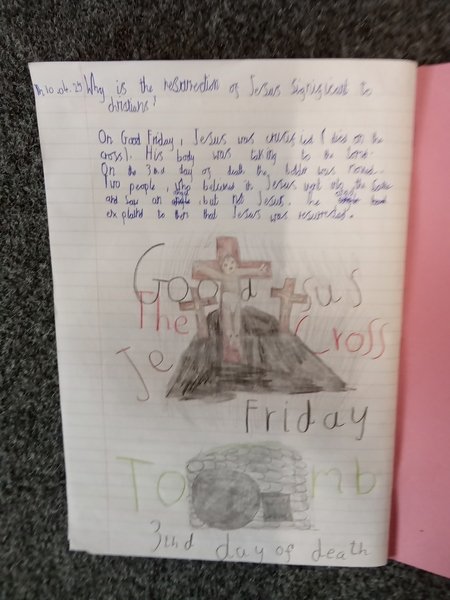 10.04.25 Why is the resurrection of Jesus significant to
christians?
On Good Friday, Jesus was (died on the
cross). His body was taking to the
On the 3nd day of death the was
Two people, who believed in Jesus went into the
and saw an angle, but not Jesus. The
explaind to them that Jesus was resurrected.
Good
Jesus
The Cross
Friday
Tomb
3nd day of death